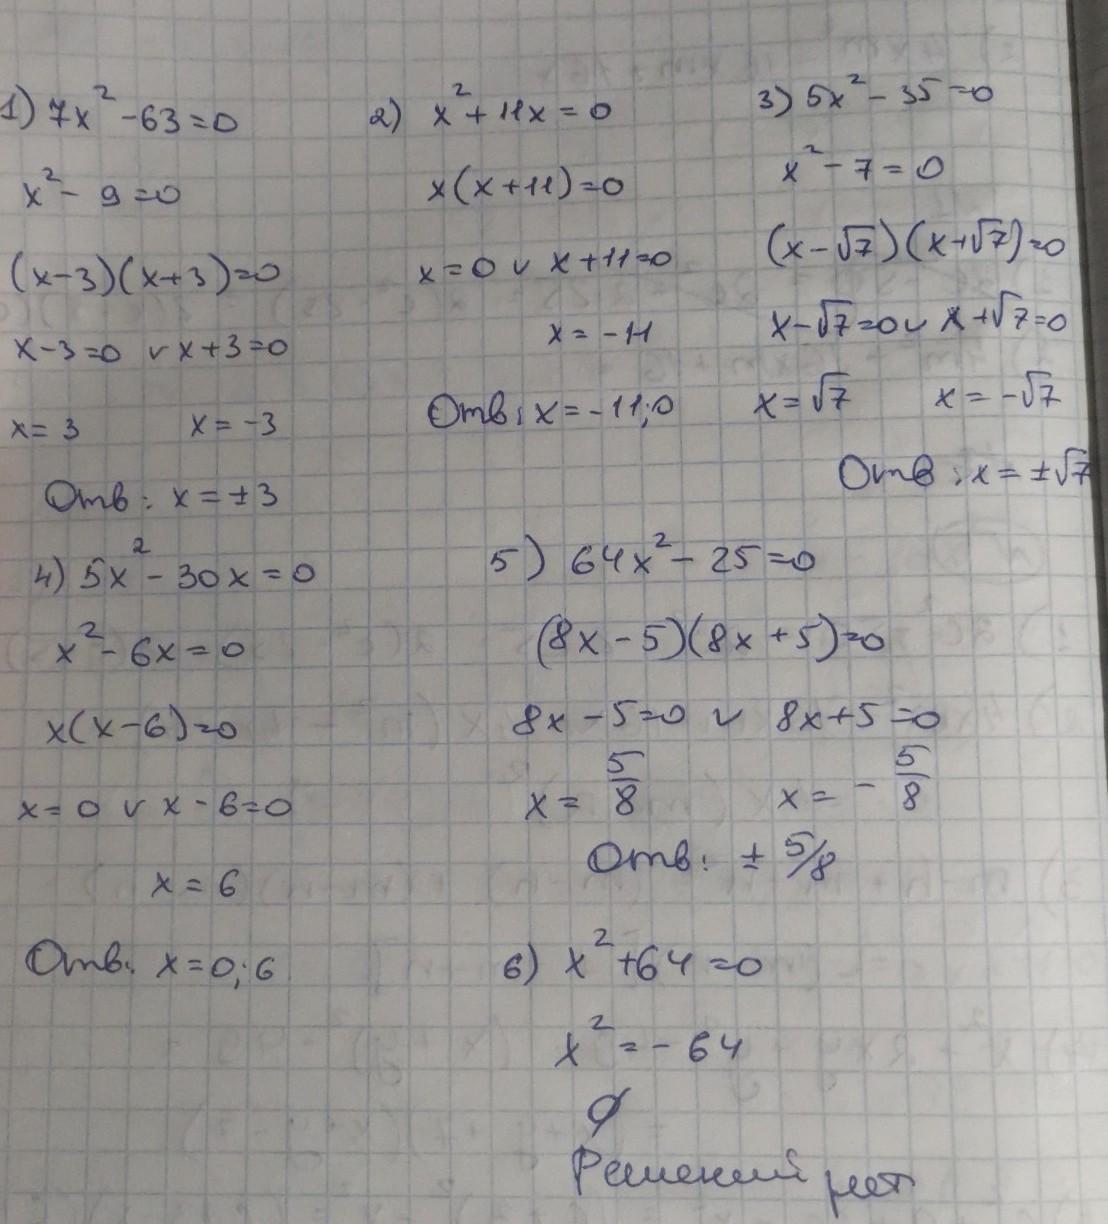 1) 7x² - 63 = 0
x² - 9 = 0
(x-3)(x+3)=0
x-3=0 ∨ x+3=0
x=3 x=-3
Отв: x=±3
2) x² + 11x = 0
x(x+11)=0
x=0 ∨ x+11=0
x=-11
Отв: x=-11;0
3) 5x² - 35=0
x² - 7 = 0
(x-√7)(x+√7)=0
x-√7=0 ∨ x+√7=0
x=√7 x=-√7
Отв: x=±√7
4) 5x² - 30x = 0
x² - 6x = 0
x(x-6)=0
x=0 ∨ x-6=0
x=6
Отв: x=0;6
5) 64x² - 25=0
(8x-5)(8x+5)=0
8x-5=0 ∨ 8x+5=0
x= 5/8 x= - 5/8
Отв: ± 5/8
6) x²+64=0
x² = -64
∅
Решений нет